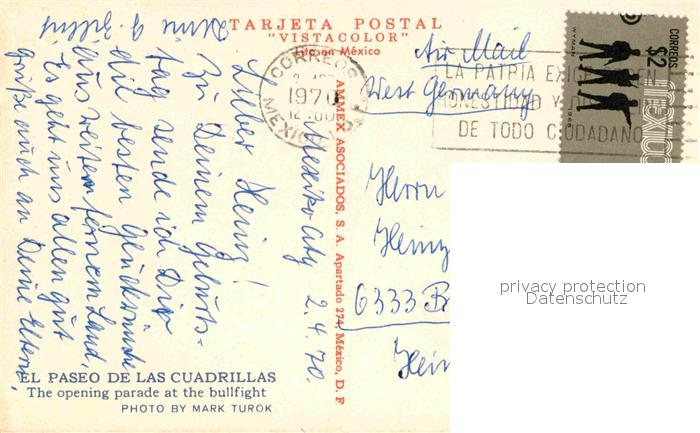 TARJETA POSTAL
"VISTACOLOR"
Lito en México
CORREOS
1970
12
MEXICO
LA PATRIA EXIGE
HONESTIDAD Y
DE TODO CIUDADANO
CORREOS
$2
MEXICO
1968
Air Mail
West Germany
Herrn
Heinz
6333 B
Hein
AMMEX ASOCIADOS, S. A. Apartado 274, México, D. F
Mexiko City 2.4.70.
Lieber Heinz!
Zu Deinem Geburts-
tag sende ich Dir
die besten Glückwünsche
aus weitem fernem Land,
Es geht uns allen gut
grüße auch an Deine Eltern,
Deine
EL PASEO DE LAS CUADRILLAS
The opening parade at the bullfight
PHOTO BY MARK TUROK
privacy protection
Datenschutz